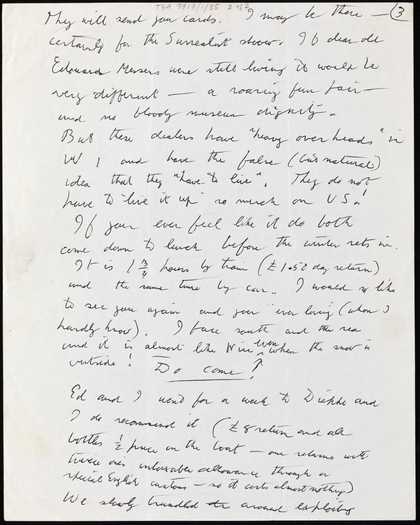 TGA 7919/1/25 2 of 2
They will send you cards. I may be there — (3
certainly for the Surrealist shows. If dear old
Edouard Mesens were still living it would be
very different — a roaring fun fair —
and no bloody museum dignity.
But these dealers have "heavy overheads" in
W 1 and have the false (but natural)
idea that they "have to live". They do not
have to "live it up" so much on US!
If you ever feel like it do both
come down to lunch before the winter sets in.
It is 1 3/4 hours by train (£1.50 day return)
and the same time by car. I would so like
to see you again and your (whom I
hardly know). I face south and the sea
and it is almost like Nice even when the snow is
outside! Do come!
Ed and I went for a week to Dieppe and
I do recommend it (£8 return and all
bottles 1/2 price on the boat — one returns with
twice ones allowance through a
special English customs — so it costs almost nothing)
We slowly around exploring